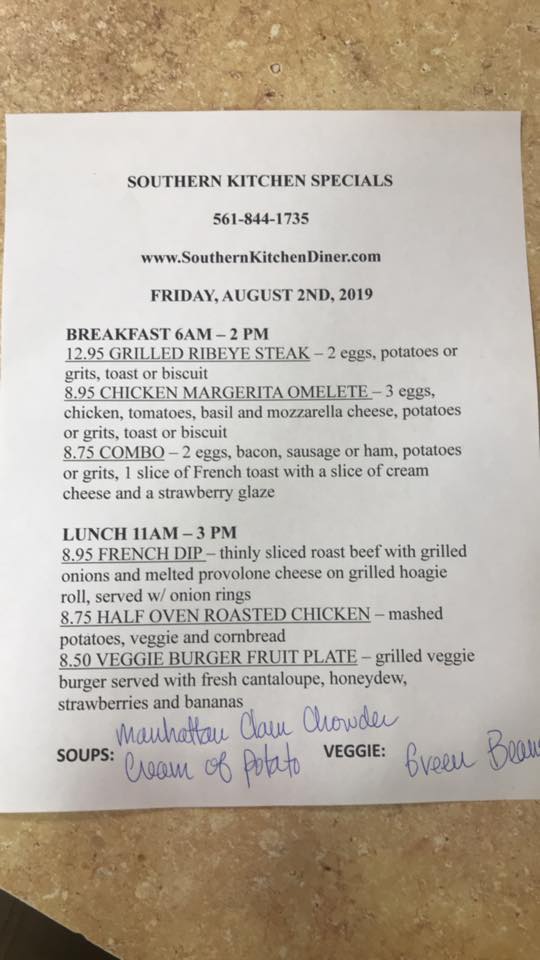 SOUTHERN KITCHEN SPECIALS
561-844-1735
www.SouthernKitchenDiner.com
FRIDAY, AUGUST 2ND, 2019
BREAKFAST 6AM – 2 PM
12.95 GRILLED RIBEYE STEAK – 2 eggs, potatoes or
grits, toast or biscuit
8.95 CHICKEN MARGERITA OMELETE – 3 eggs,
chicken, tomatoes, basil and mozzarella cheese, potatoes
or grits, toast or biscuit
8.75 COMBO – 2 eggs, bacon, sausage or ham, potatoes
or grits, 1 slice of French toast with a slice of cream
cheese and a strawberry glaze
LUNCH 11AM – 3 PM
8.95 FRENCH DIP – thinly sliced roast beef with grilled
onions and melted provolone cheese on grilled hoagie
roll, served w/ onion rings
8.75 HALF OVEN ROASTED CHICKEN – mashed
potatoes, veggie and cornbread
8.50 VEGGIE BURGER FRUIT PLATE – grilled veggie
burger served with fresh cantaloupe, honeydew,
strawberries and bananas
Manhattan Clam Chowder
SOUPS: Cream of Potato VEGGIE: Green Bean